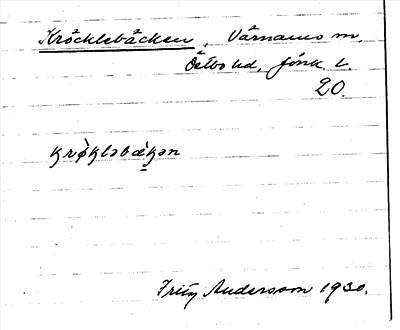 Kröcklebäcken, Värnamo m,
Östbo hd, Jönk. l.
20.
krø̀kləbækən
Fritz Andersson 1930.